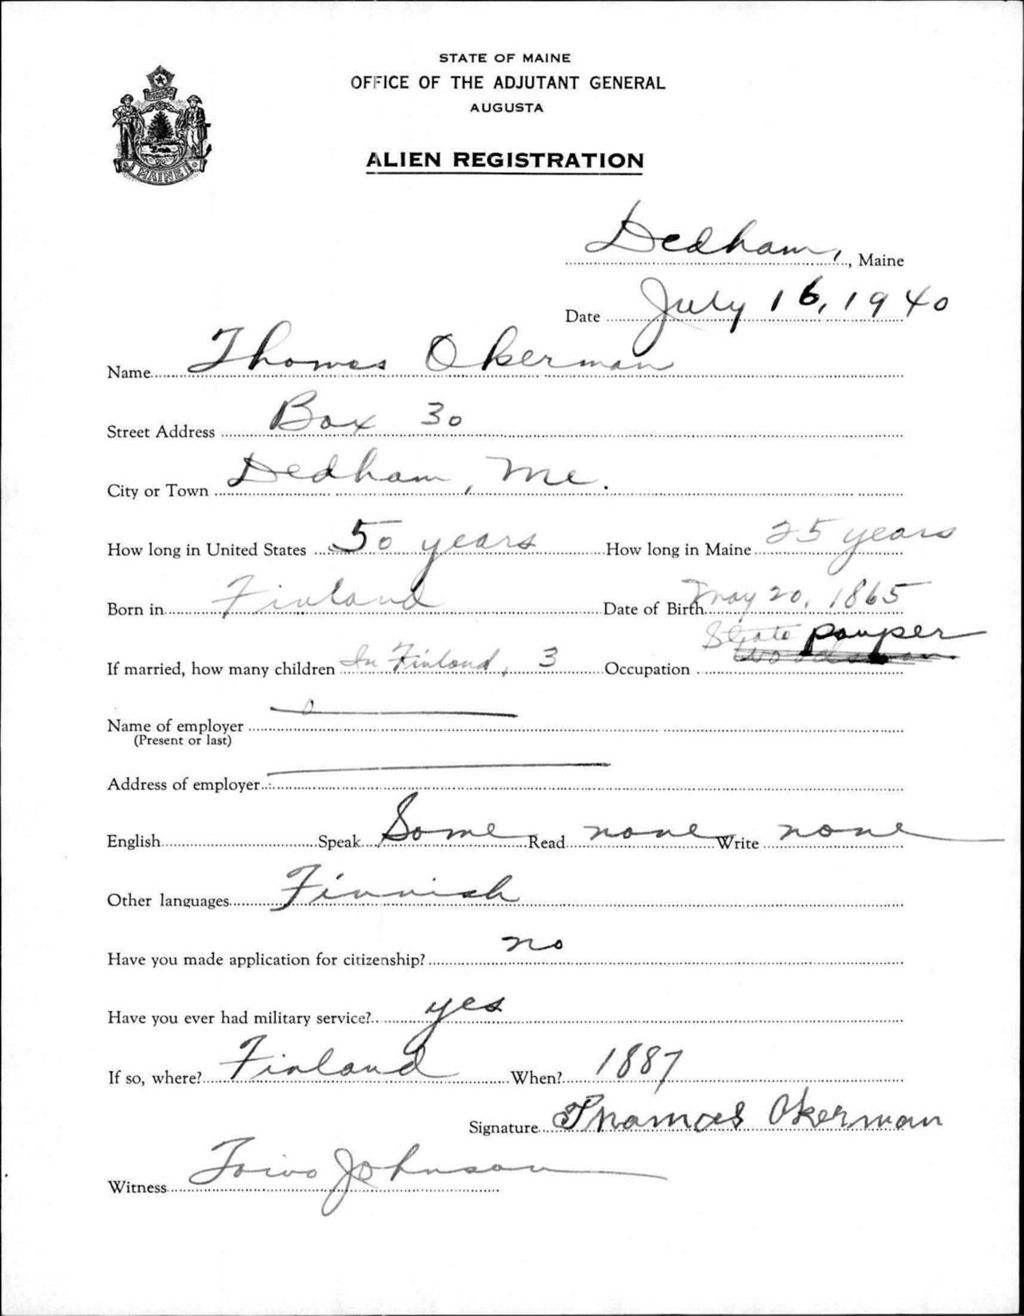 STATE OF MAINE
OFFICE OF THE ADJUTANT GENERAL
AUGUSTA
ALIEN REGISTRATION
MAINE
Dedham, , Maine
Date July 16, 1940
Name Thomas Okerman
Street Address Box 30
City or Town Dedham, Me.
How long in United States 50 years How long in Maine 25 years
Born in Finland Date of Birth May 20, 1865
State pauper
If married, how many children In Finland, 3 Occupation woodsman
Name of employer
(Present or last)
Address of employer
English Speak Some Read none Write none
Other languages Finnish
Have you made application for citizenship? no
Have you ever had military service? yes
If so, where? Finland When? 1887
Signature Thomas Okerman
Witness Toivo Johnson